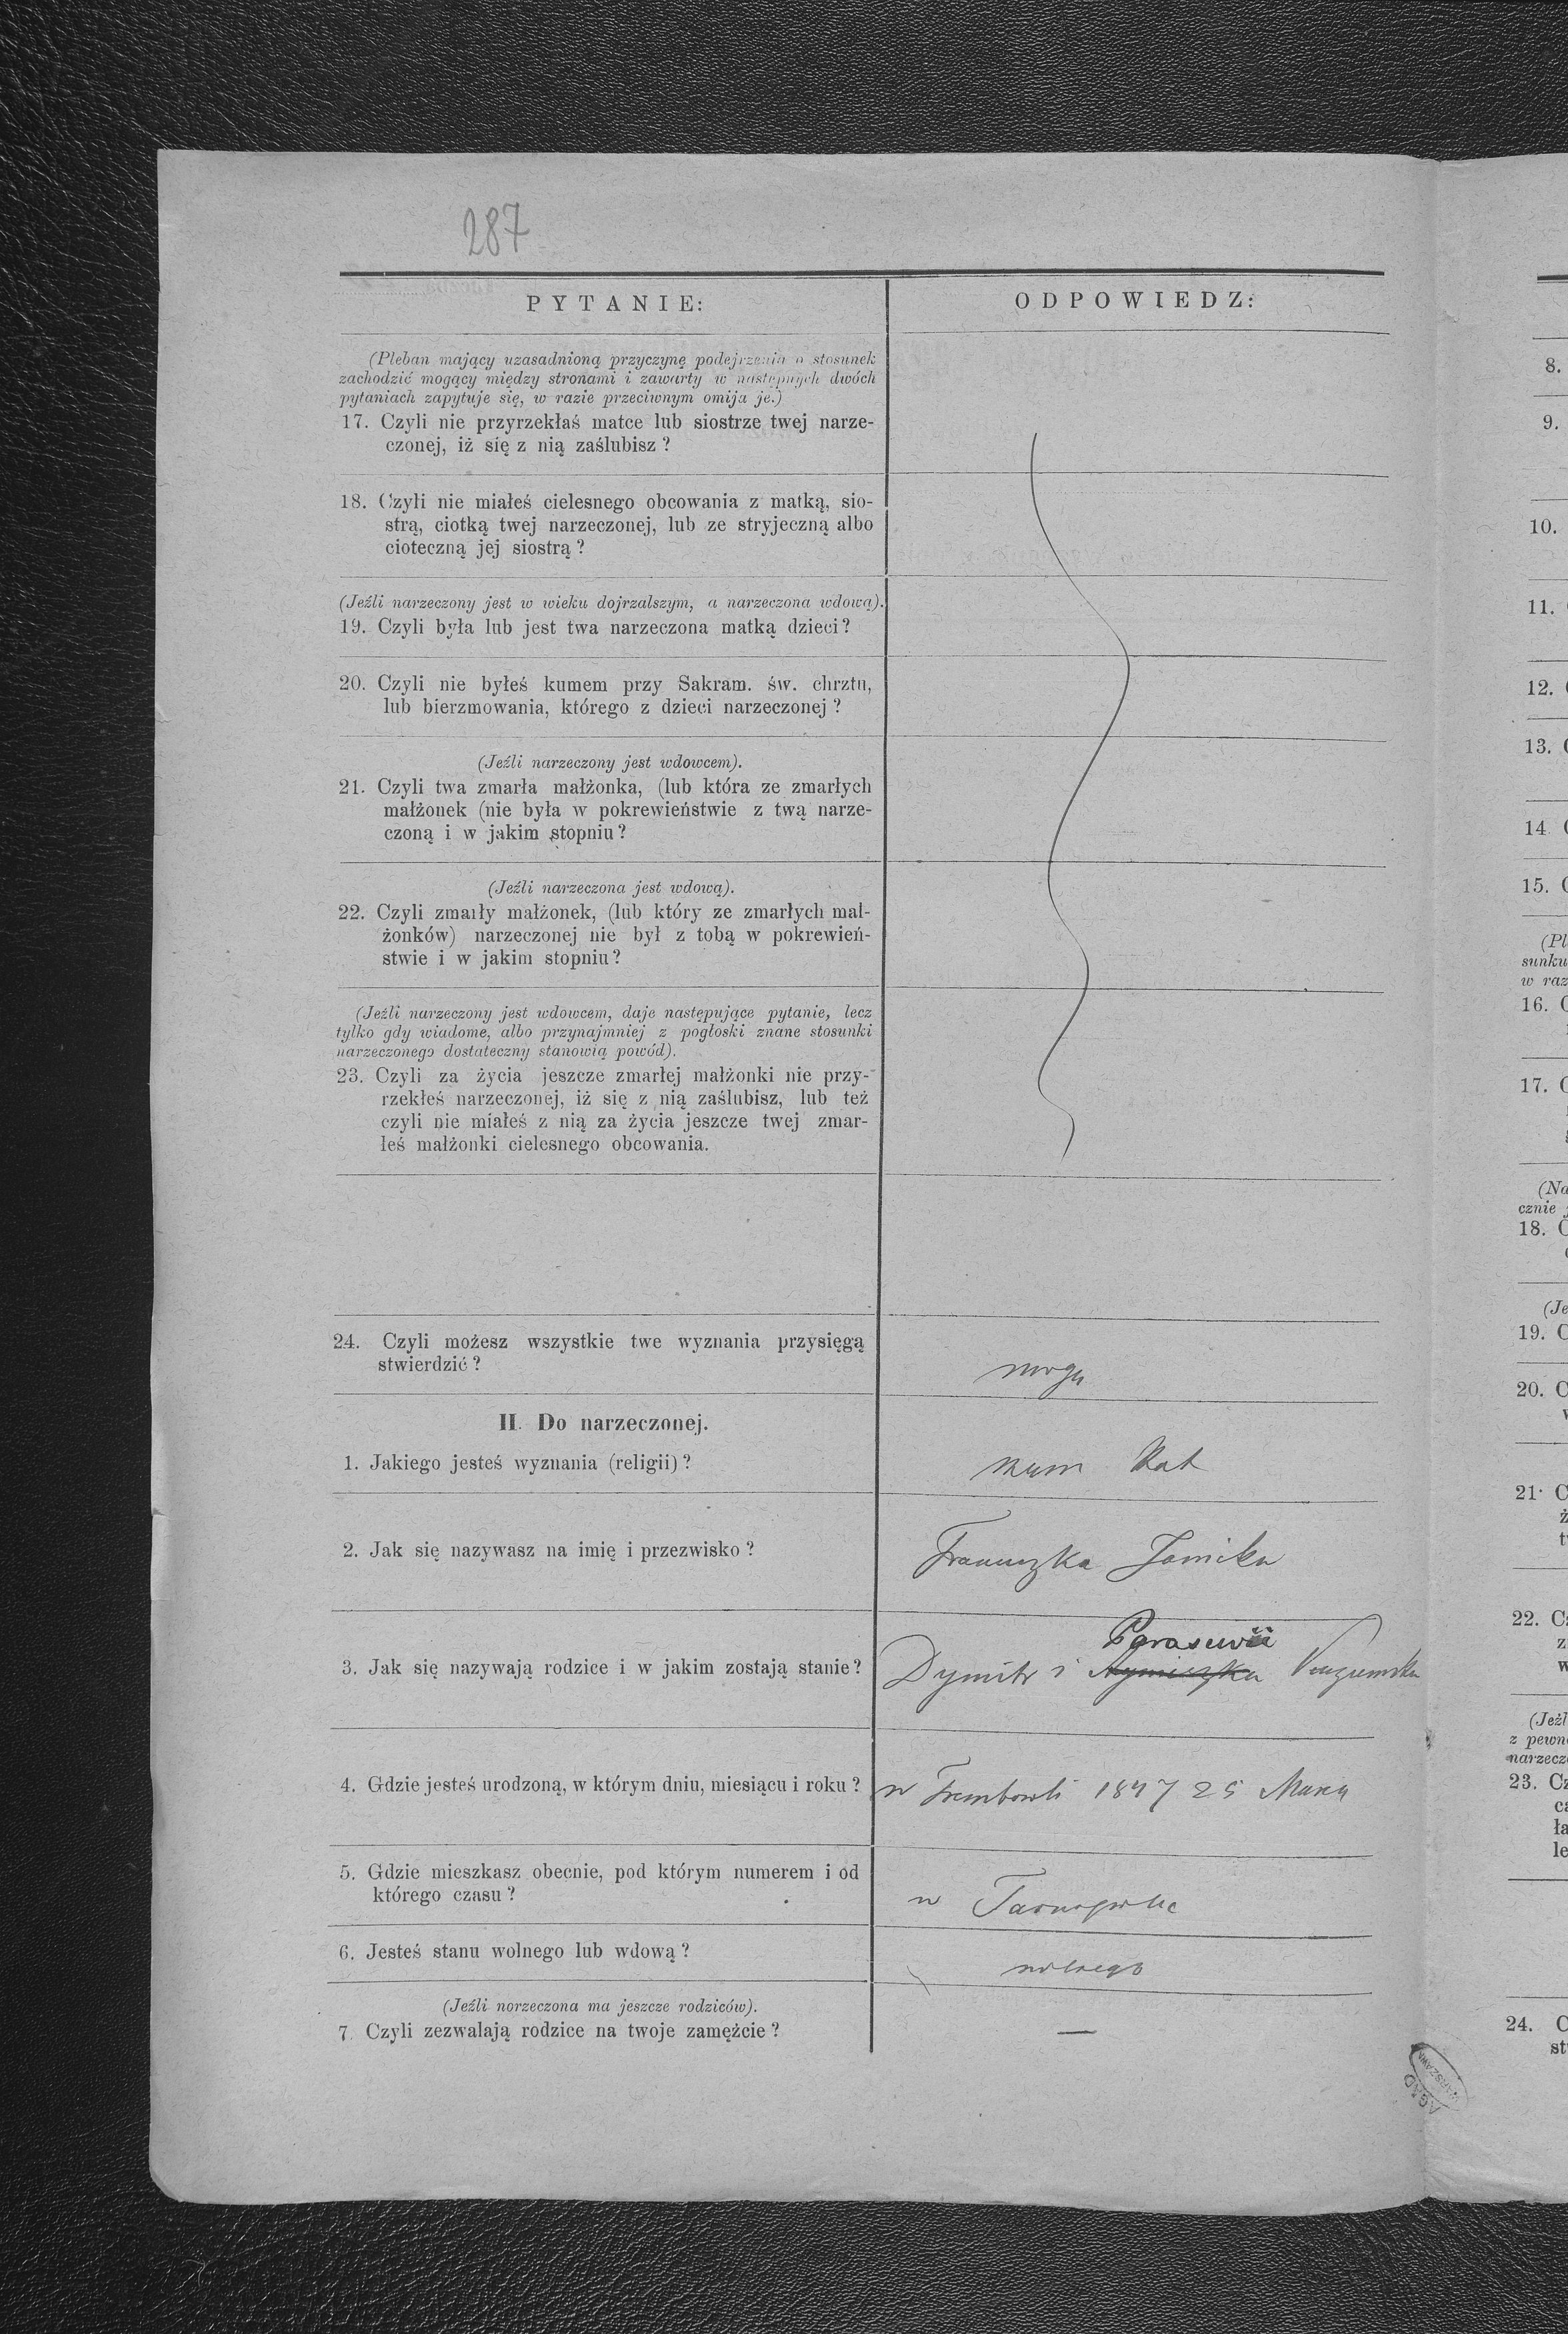 287
PYTANIE:
ODPOWIEDZ:
(Pleban mający uzasadnioną przyczynę podejrzenia o stosunek
zachodzić mogący między stronami i zawarty w następnych dwóch
pytaniach zapytuje się, w razie przeciwnym omija je.)
17. Czyli nie przyrzekłaś matce lub siostrze twej narze-
czonej, iż się z nią zaślubisz ?
18. Czyli nie miałeś cielesnego obcowania z matką, sio-
strą, ciotką twej narzeczonej, lub ze stryjeczną albo
cioteczną jej siostrą ?
(Jeźli narzeczony jest w wieku dojrzalszym, a narzeczona wdową).
19. Czyli była lub jest twa narzeczona matką dzieci ?
20. Czyli nie byłeś kumem przy Sakram. św. chrztu,
lub bierzmowania, którego z dzieci narzeczonej ?
(Jeźli narzeczony jest wdowcem).
21. Czyli twa zmarła małżonka, (lub która ze zmarłych
małżonek (nie była w pokrewieństwie z twą narze-
czoną i w jakim stopniu ?
(Jeźli narzeczona jest wdową).
22. Czyli zmarły małżonek, (lub który ze zmarłych mał-
żonków) narzeczonej nie był z tobą w pokrewień-
stwie i w jakim stopniu ?
(Jeźli narzeczony jest wdowcem, daje następujące pytanie, lecz
tylko gdy wiadome, albo przynajmniej z pogłoski znane stosunki
narzeczonego dostateczny stanowią powód).
23. Czyli za życia jeszcze zmarłej małżonki nie przy-
rzekłeś narzeczonej, iż się z nią zaślubisz, lub też
czyli nie miałeś z nią za życia jeszcze twej zmar-
łeś małżonki cielesnego obcowania.
24. Czyli możesz wszystkie twe wyznania przysięgą
stwierdzić ?
mogę
II. Do narzeczonej.
1. Jakiego jesteś wyznania (religii) ?
rzym Kat
2. Jak się nazywasz na imię i przezwisko ?
Franciszka
3. Jak się nazywają rodzice i w jakim zostają stanie ?
Parascewii
Dymitr i
4. Gdzie jesteś urodzoną, w którym dniu, miesiącu i roku ?
w Trembowli 1847 25 Marca
5. Gdzie mieszkasz obecnie, pod którym numerem i od
którego czasu ?
w Tarnopolu
6. Jesteś stanu wolnego lub wdową ?
wolnego
(Jeźli norzeczona ma jeszcze rodziców).
7. Czyli zezwalają rodzice na twoje zamężcie ?
—
8.
9.
10.
11.
12.
13.
14
15.
(Pl
sunku
w raz
16.
17.
(Na
cznie
18.
(Je
19.
20.
21.
22.
(Jeźl
z pewn
narzecz
23.
24.
st
AGAD
WARSZAWA